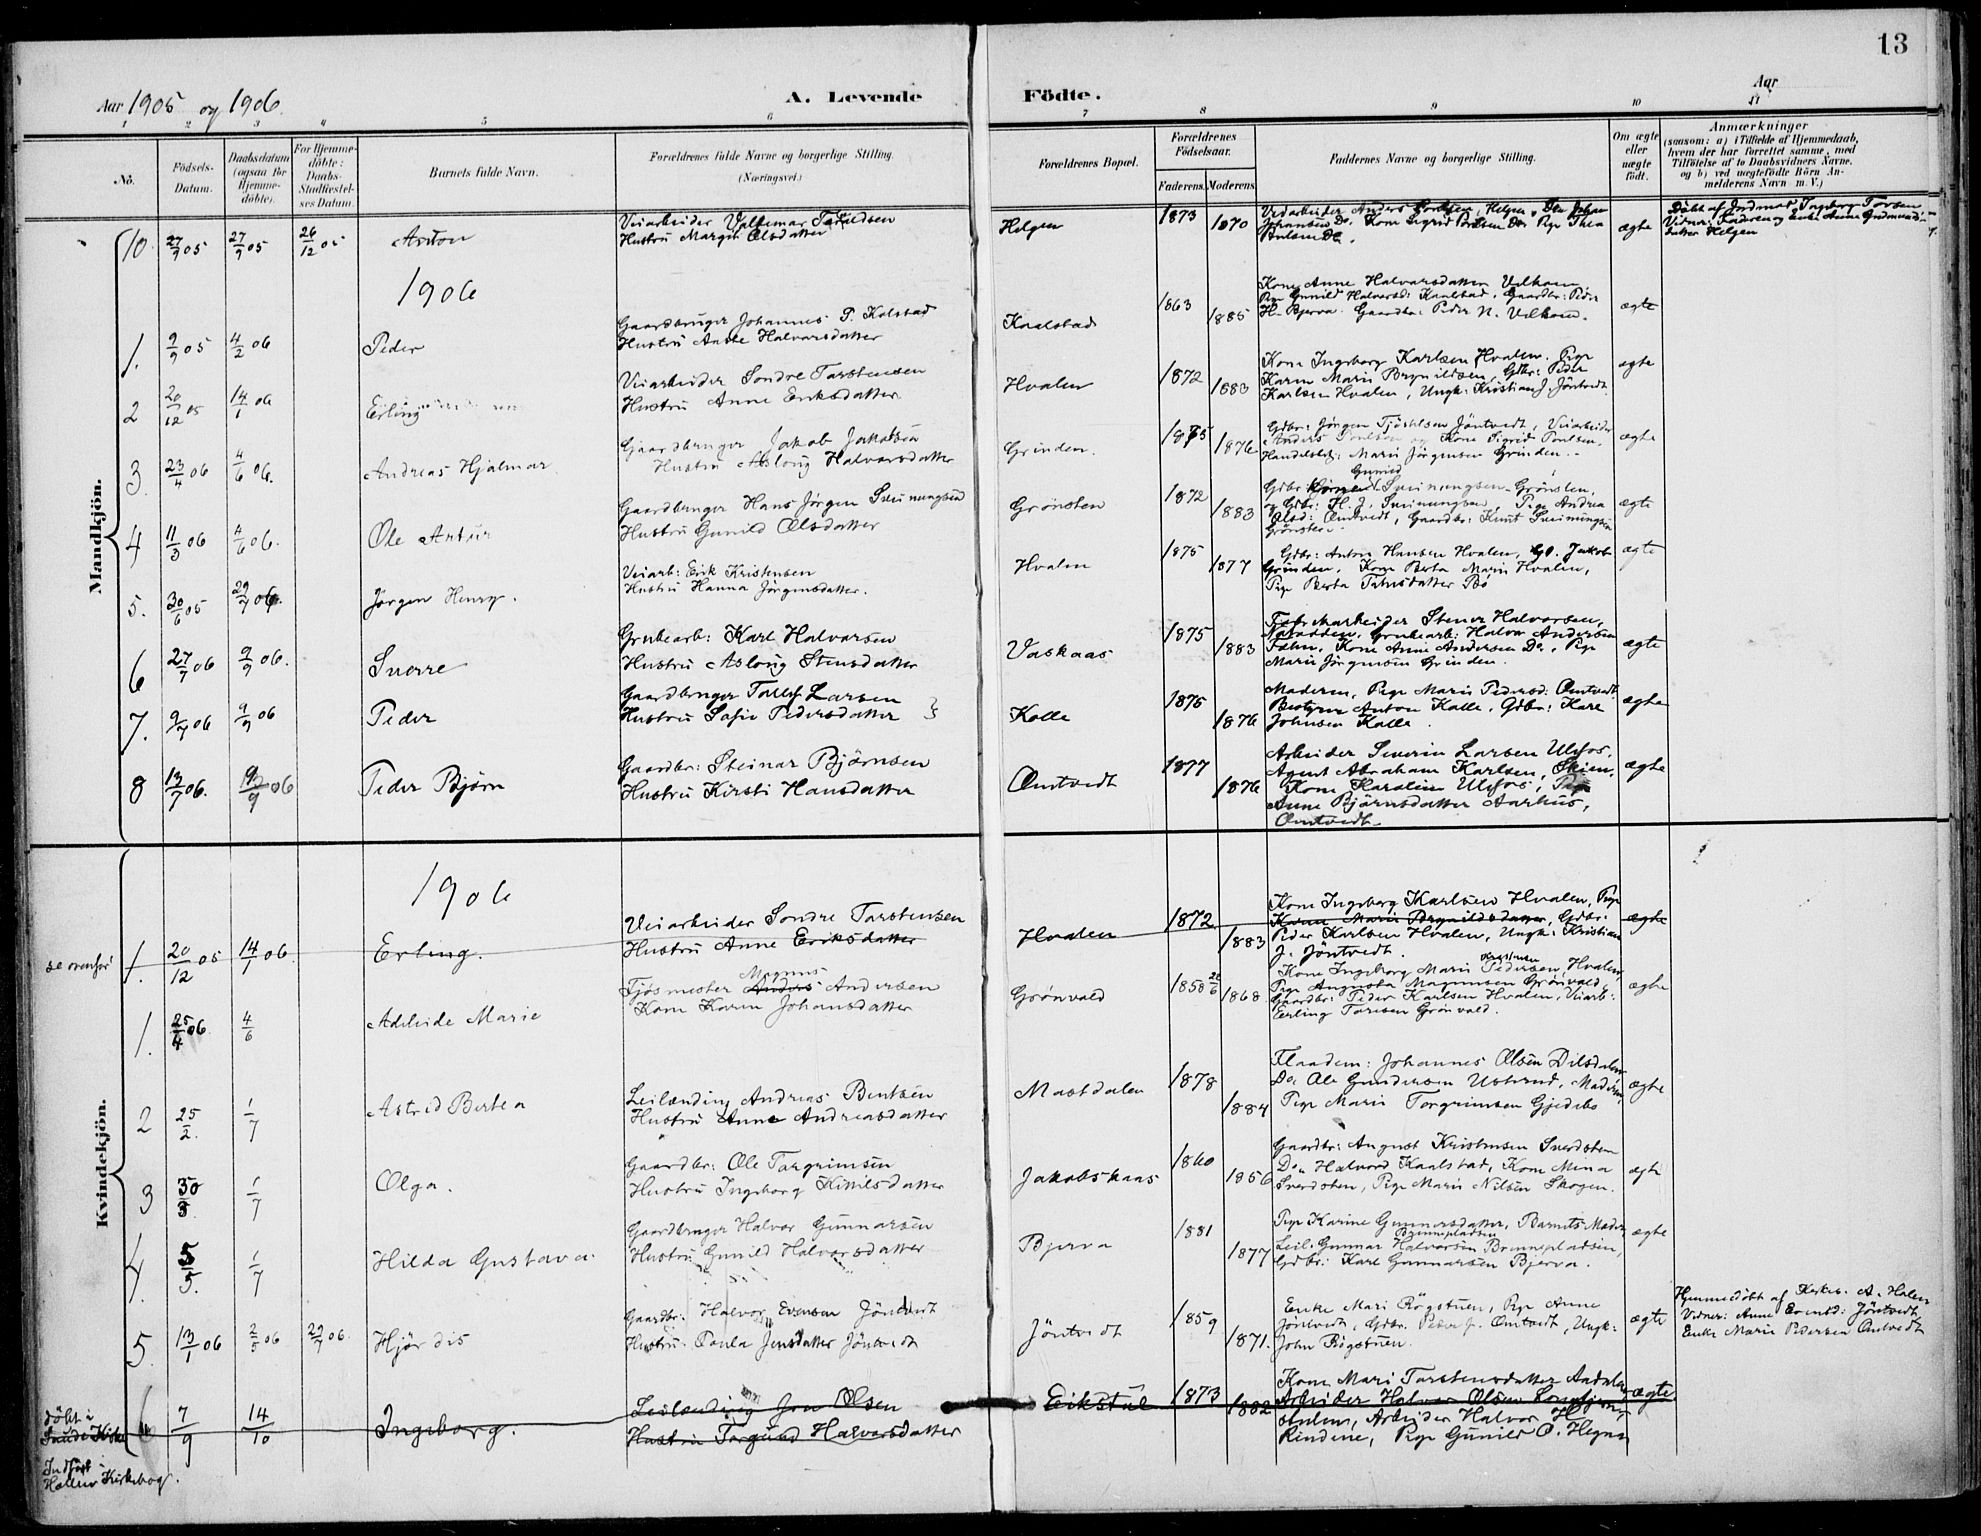 13
Aar 1905 og 1906.
A. Levende Födte.
Aar
1 2 3 4 5 6 7 8 9 10 11
No.
Födsels-Datum.
Daabsdatum (ogsaa for Hjemme-döbte).
For Hjemme-döbte: Daabs-Stadfæstel-ses Datum.
Barnets fulde Navn.
Forældrenes fulde Navne og borgerlige Stilling.
(Næringsvei.)
Forældrenes Bopæl.
Forældrenes Födselsaar.
Faderens. Moderens.
Faddernes Navne og borgerlige Stilling.
Om ægte eller uægte födt.
Anmærkninger
(saasom: a) i Tilfælde af Hjemmedaab,
hvem der har forrettet samme, med
Tilföielse af to Daabsvidners Navne,
og b) ved uægtefödte Börn An-
melderens Navn m. V.)
Mandkjön.
10. 27/9 05 27/9 05 26/12 05 Anton
Veiarbeider Valdemar
Hustru Margit Olsdatter
Helgen 1873 1870 ægte
1906
1. 9/9 05 4/2 06 Peder
Gaardbruger Johannes P. Kolstad
Hustru Anne Halvorsdatter
Kaalstad 1863 1885
Kone Anne Halvorsdatter
Pige Gunild Halvorsd: Kaalstad, Gaardbr: Peder
H. Bjerva. Gaardbr: Peder N.
ægte
2 20/12 05 14/1 06 Erling
Veiarbeider Sondre Tarstensen
Hustru Anne Eriksdatter
Hvalen 1872 1883
Kone Ingeborg Karlsen Hvalen. Pige
Karen Marie Brynildsen, Gdbr: Peder
Karlsen Hvalen, Ungk: Kristian J. Jöntvedt
ægte
3. 23/4 06 4/6 06. Andreas Hjalmar
Gaardbruger Jakob Jakobsen
Hustru Asloug Halvorsdatter
Grinden. 1875 1876
Gdbr: Jörgen Jöntvedt, Veiarbeider
Anders Poulsen og Kone Sigrid Poulsen,
Marie Jörgensen Grinden.
ægte
4 11/3 06 4/6 06. Ole Artur
Gaardbruger Hans Jörgen Sveinungsen
Hustru Gunild Olsdatter
Grönsten 1872 1883
Gunild
Gdbr: Sveinungsen Grönsten,
og Gdbr: H. J. Sveinungsen, Pige Andrea
Olsd: Omtvedt, Gaardbr: Knut Sveinungsen
Grönsten
ægte
5. 30/6 05 29/7 06. Jörgen Henry.
Veiarb: Erik Kristensen
Hustru Hanna Jörgensdatter.
Hvalen 1875 1877
Gdbr: Anton Hansen Hvalen, Jakob
Grinden, Kone Berta Marie Hvalen,
Pige Berta Bö
ægte
6 27/7 06 9/9 06. Sverre
Grubearb: Karl Halvorsen
Hustru Asloug Stensdatter
Vaskaas 1875 1883
Fabrikarbeider Stener Halvorsen,
Grubearb: Halvor Andersen
Kone Anne Andersen Do, Pige
Marie Jörgensen Grinden.
ægte
7. 9/7 06 9/9 06 Peder
Gaardbruger Tollef Larsen
Hustru Sofie Pedersdatter
Kolle 1875 1876
Moderen, Pige Marie Pedersd: Omtvedt
Bestyrer Anton Kalle, Gdbr: Karl
Johnsen Kalle.
ægte
8 13/7 06. 9/9 06 Peder Björn
Gaardbr: Steinar Björnsen
Hustru Kirsti Hansdatter
Omtvedt 1877 1876
Arbeider Severin Larsen Ulefos,
Agent Abraham Karlsen, Skien,
Kone Karoline Ulefos, Pige
Anne Björnsdatter Aarhus,
Omtvedt
ægte
Kvindekjön.
1906
se ovenfor
1. 20/12 05 14/1 06 Erling.
Veiarbeider Sondre Tarstensen
Hustru Anne Eriksdatter
Hvalen 1872 1883
Kone Ingeborg Karlsen Hvalen, Pige
Karen Marie Brynildsdatter, Gdbr:
Peder Karlsen Hvalen, Ungk: Kristian
J. Jöntvedt.
ægte
1. 25/4 06 4/6 Adeleide Marie
Magnus
Fjösmester Anders Andersen
Kone Karen Johansdatter
Grönvald 1858 1868
Kone Ingeborg Marie Pedersen, Hvalen,
Pige Augusta Magnussen Grönvald,
Gaardbr: Peder Karlsen Hvalen, Veiarb:
Erling Grönvald.
ægte
2 25/2. 1/7 Astrid Bertea
Leilending Andreas Bentsen
Hustru Anne Andreasdatter
Mastdalen 1878 1884
Johannes Olsen Dilsdalen
Do Ole Gundersen Ustrud, Moderen,
Pige Marie Torgrimsen Gjedebo
ægte
3 30/3. 1/7 Olga.
Gaardbr: Ole Torgrimsen
Hustru Ingeborg Kittilsdatter
Jakobskaas 1860 1856
Gaardbr: August Kristensen Sverdsten
Do Halvord Kaalstad, Kone Mina
Sverdsten, Pige Marie Nilsen Skogen.
ægte
4. 5/5. 1/7 Hilda Gustava
Gaardbruger Halvor Gunnarsen
Hustru Gunild Halvorsdatter
Bjerva 1881 1877
Pige Karine Gunnarsdatter, Barnets Moder
Leil. Gunnar Halvorsen Brennepladsen,
Gdbr: Karl Gunnarsen Bjerva.
ægte
5. 13/1 06 2/5 06 29/7 06. Hjördis
Gaardbr: Halvor Evensen Jöntvedt
Hustru Paula Jensdatter Jöntvedt
Jöntvedt 1859 1871.
Enke Mari Rögstuen, Pige Anne
Jöntvedt, Gdbr. Peder J. Omtvedt, Ungk:
John Rögstuen.
ægte
Hjemmedöbt af A. Holen
Vidner: Anne Jöntvedt,
Enke Marie Pedersen Omtvedt
döbt i
Saude Kirke
Indfört i
Hollen Kirkebog.
6 7/9 14/10 Ingeborg.
Leilending Jon Olsen
Hustru Torgund Halvorsdatter
Eikstul 1873 1882
Kone Mari Tarstensdatter
Arbeider Halvor Olsen
Arbeider Halvor
Rindene, Pige Gunild O. Hegna
ægte